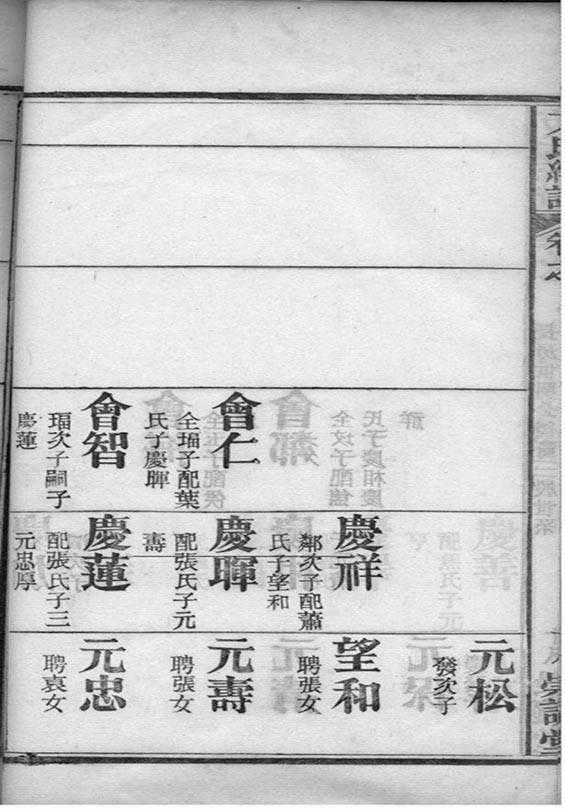 氏
卷之
會仁
子配葉
氏子慶暉
會智
次子嗣子
慶蓮
慶祥
鄰次子配蕭
氏子望和
慶暉
配張氏子元
壽
慶蓮
配張氏子三
元忠厚
元松
發次子
望和
聘張女
元壽
聘張女
元忠
聘袁女